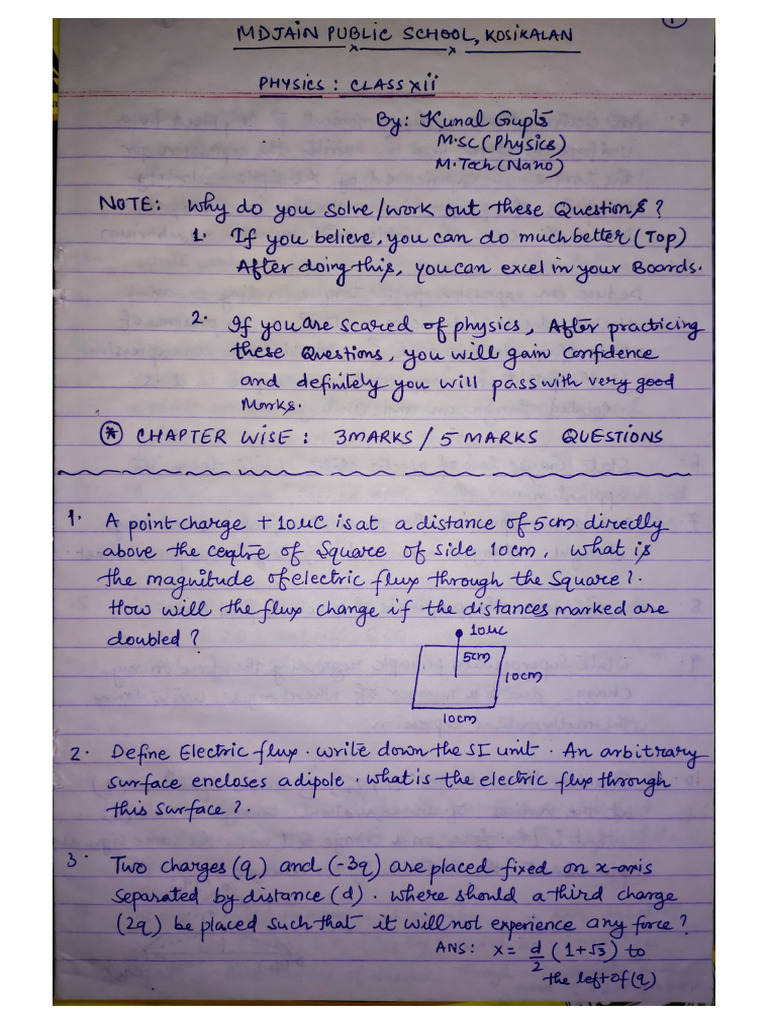 1
MDJAIN PUBLIC SCHOOL, KOSIKALAN
PHYSICS : CLASS XII
By: Kunal Gupta
M.SC (Physics)
M.Tech (Nano)
NOTE: Why do you solve/work out these Questions?
1. If you believe, you can do much better (Top)
After doing this, you can excel in your Boards.
2. If you are scared of physics, After practicing
these Questions, you will gain confidence
and definitely you will pass with very good
Marks.
* CHAPTER WISE : 3 MARKS / 5 MARKS QUESTIONS
1. A point charge +10μC is at a distance of 5cm directly
above the centre of Square of side 10cm, what is
the magnitude of electric flux through the Square?.
How will the flux change if the distances marked are
doubled?
10μC
5cm
10cm
10cm
2. Define Electric flux. write down the SI unit. An arbitrary
surface encloses a dipole. what is the electric flux through
this surface?.
3. Two charges (q) and (-3q) are placed fixed on x-axis
separated by distance (d). where should a third charge
(2q) be placed such that it will not experience any force?
ANS: x = d/2 (1+√3) to
the left of (q)